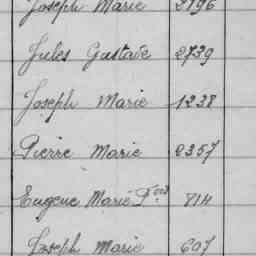 Joseph Marie 2796
Jules Gustave 2739
Joseph Marie 1238
Pierre Marie 2357
Eugene Marie Fcois 814
Joseph Marie 607